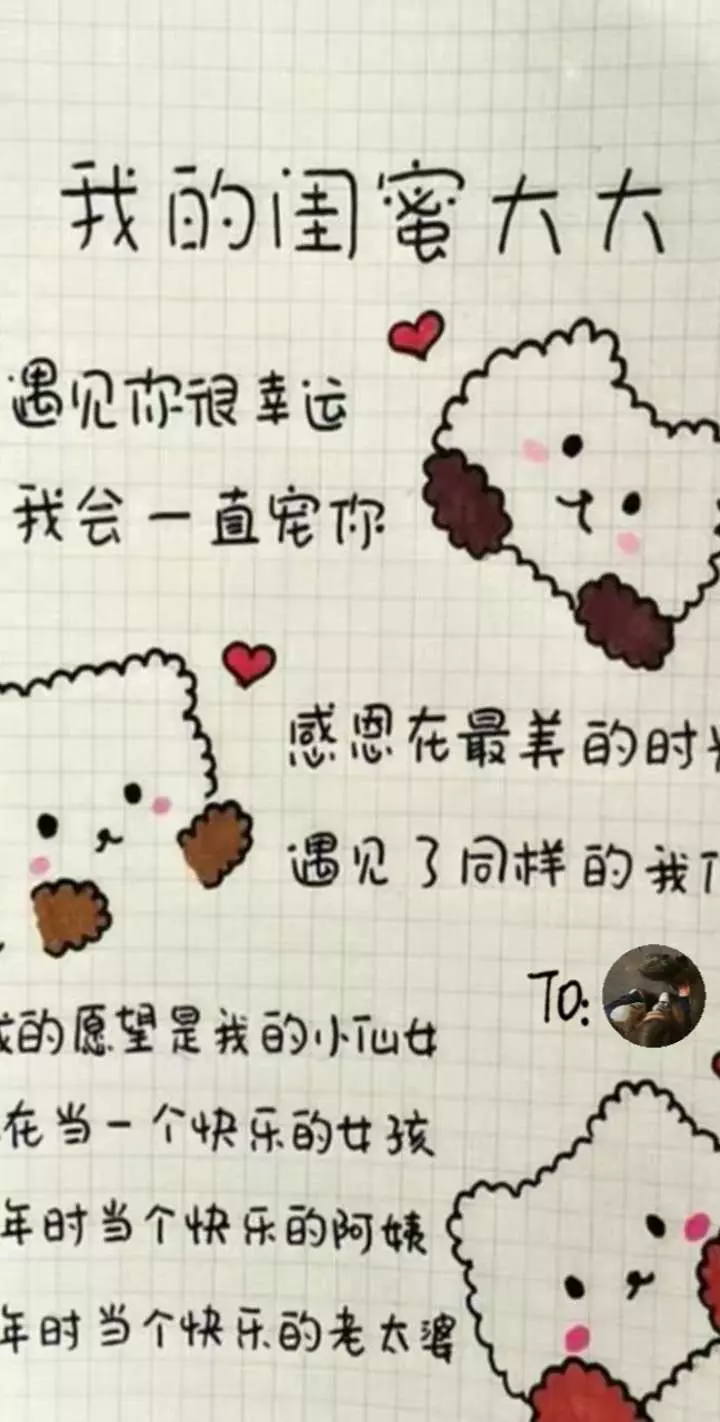 我的闺蜜大大
遇见你很幸运
我会一直宠你
感恩在最美的时光
遇见了同样的我们
TO:
我的愿望是我的小仙女
在当一个快乐的女孩
年时当个快乐的阿姨
年时当个快乐的老太婆